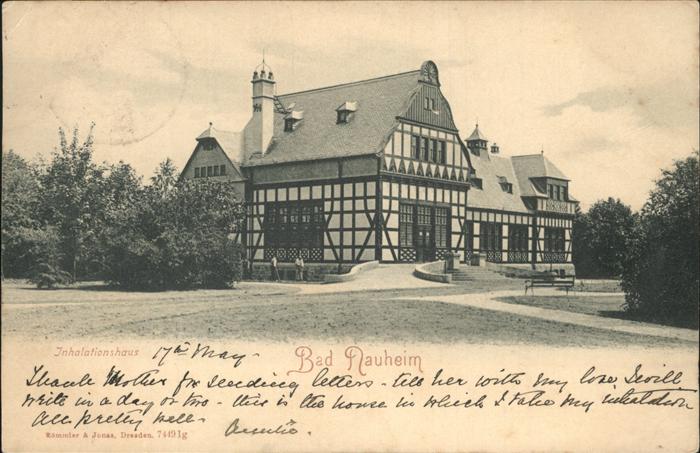 Inhalationshaus 17th May - Bad Nauheim
Thank Mother for sending letters - tell her with my love, I will
write in a day or two - this is the house in which I take my inhalation
All pretty well -
Römmler & Jonas, Dresden. 7449 1g